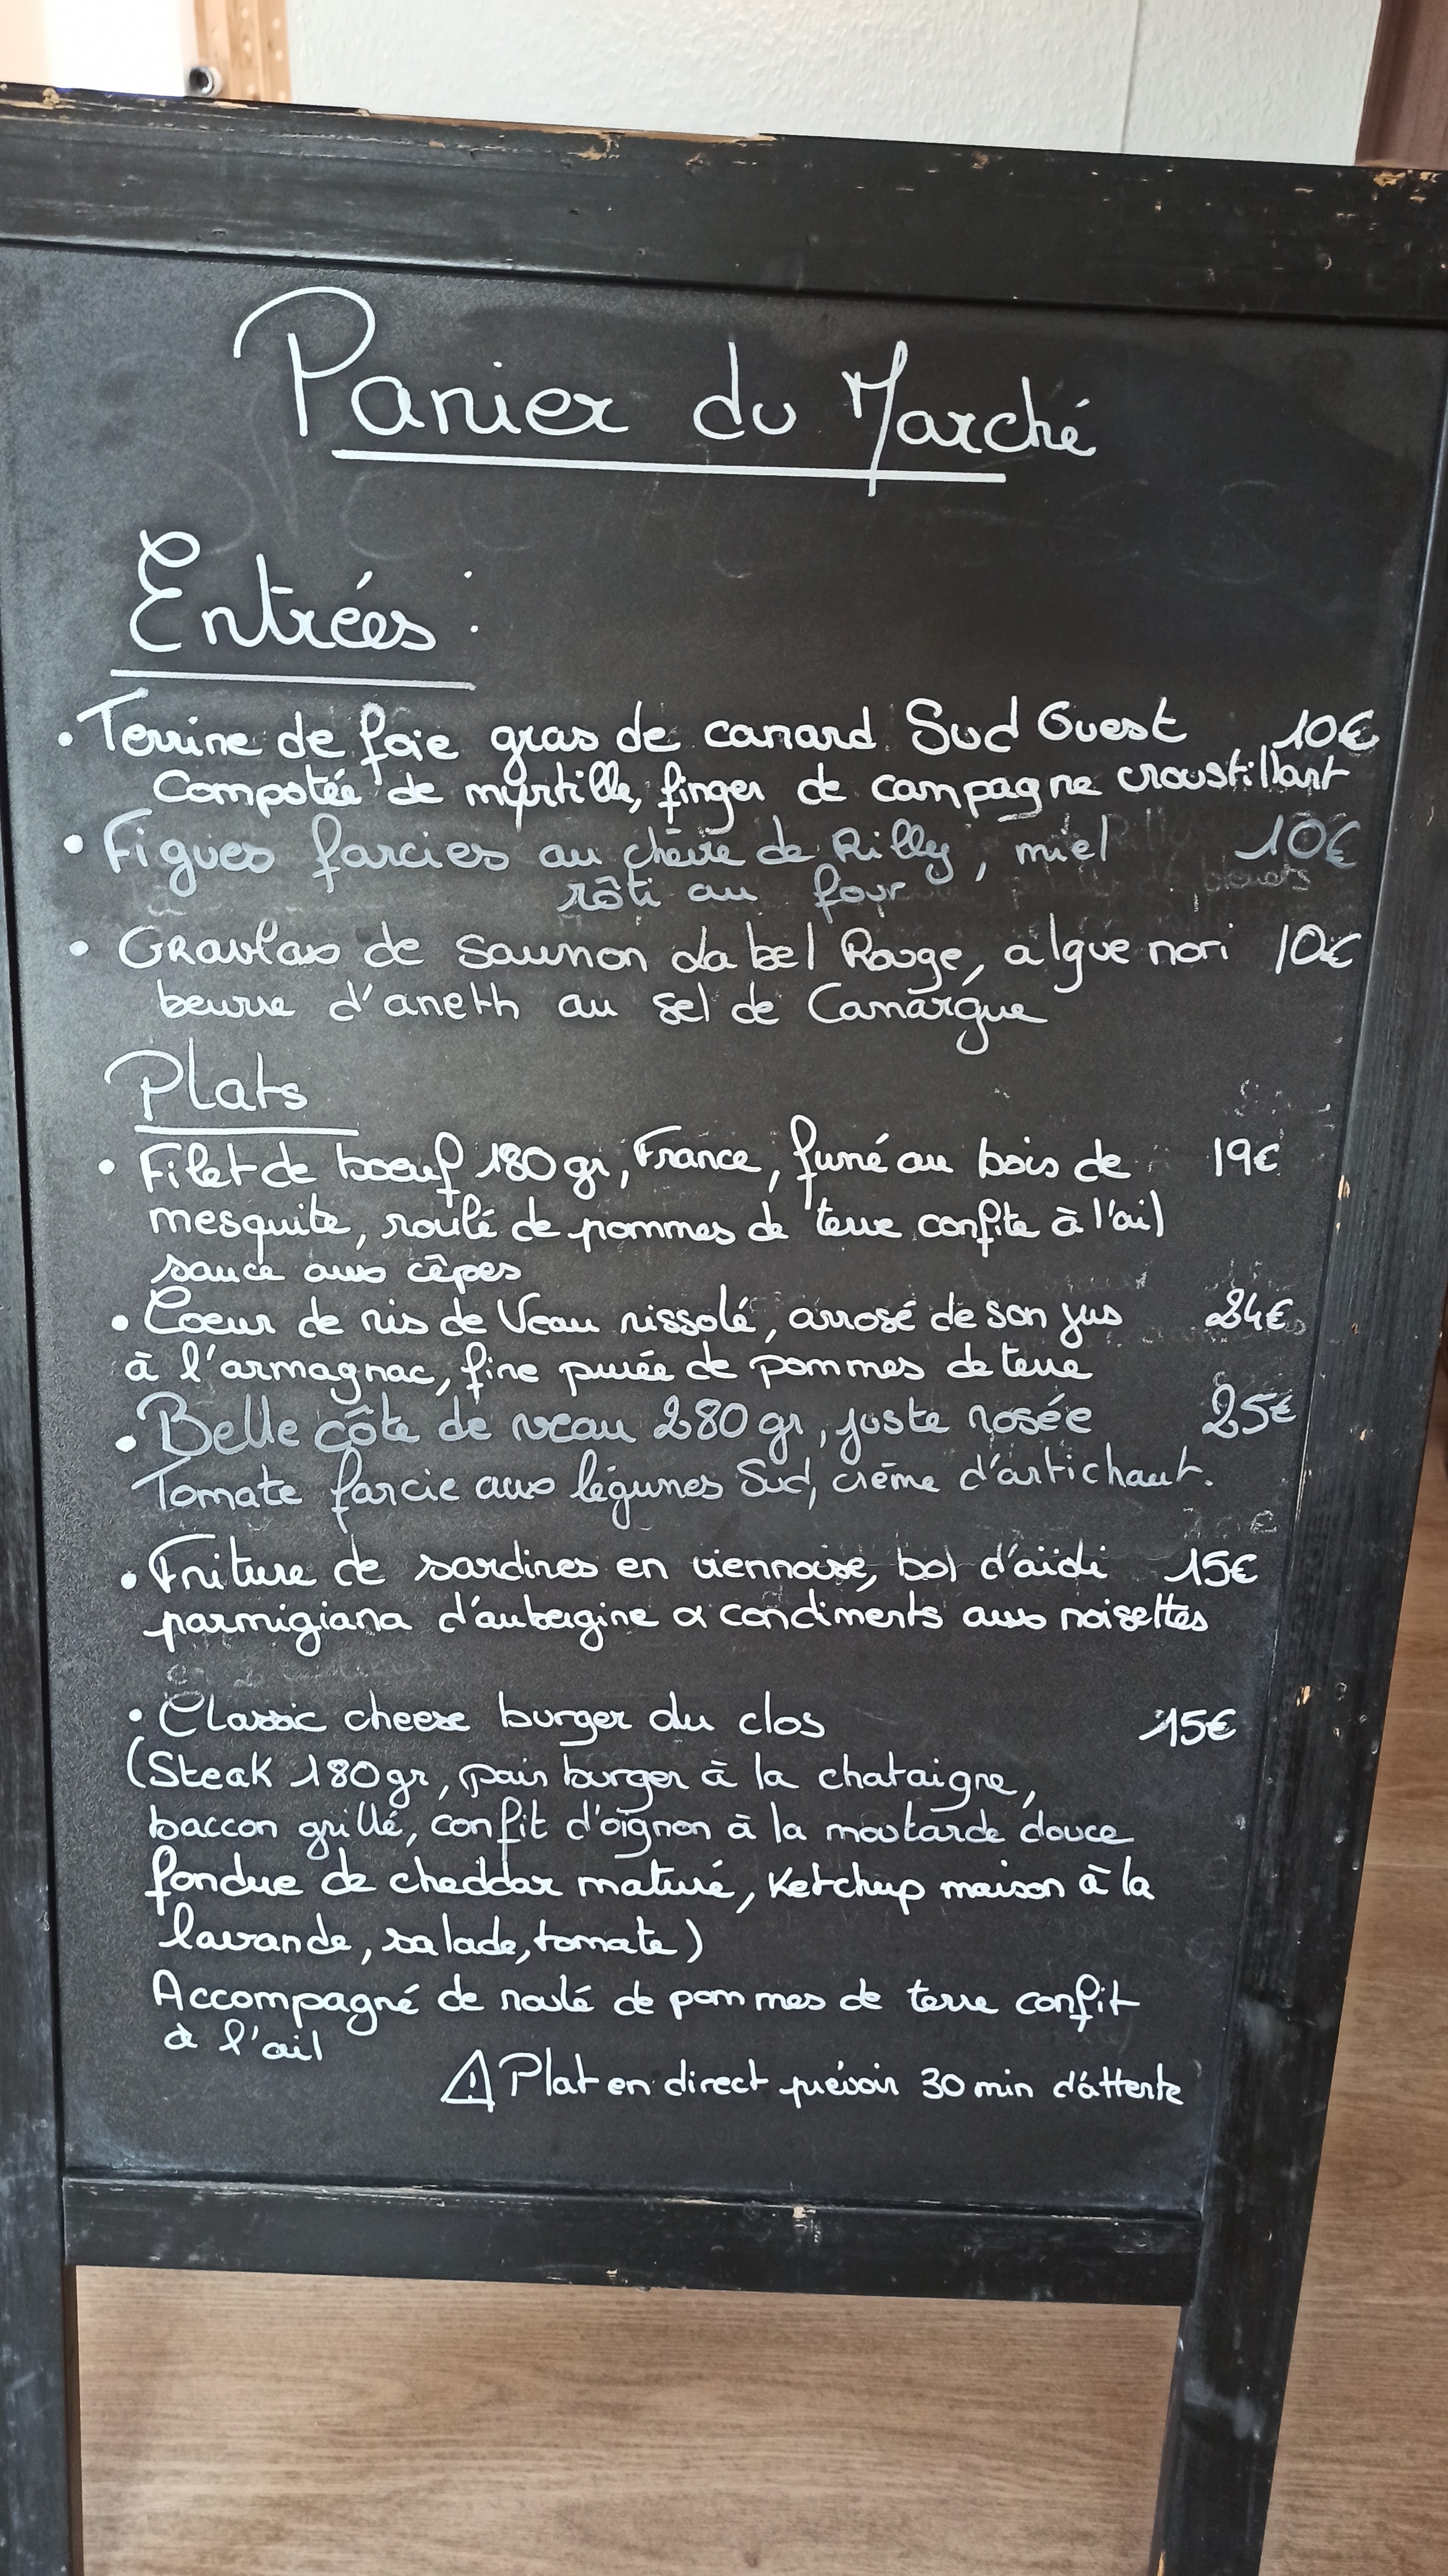 Panier du Marché
Entrées :
• Terrine de foie gras de canard Sud Ouest 10€
Compotée de myrtille, finger de campagne croustillant
• Figues farcies au chèvre de Rilly, miel 10€
rôti au four
• Gravlax de saumon Label Rouge, algue nori 10€
beurre d'aneth au sel de Camargue
Plats
• Filet de boeuf 180gr, France, fumé au bois de 19€
mesquite, roulé de pommes de terre confite à l'ail
sauce aux cêpes
• Coeur de ris de Veau rissolé, arrosé de son jus 24€
à l'armagnac, fine purée de pommes de terre
• Belle côte de veau 280gr, juste rosée 25€
Tomate farcie aux légumes Sud, crème d'artichaut.
• Friture de sardines en viennoise, bol d'aïoli 15€
parmigiana d'aubergine & condiments aux noisettes
• Classic cheese burger du clos 15€
(Steak 180gr, pain burger à la chataigne,
baccon grillé, confit d'oignon à la moutarde douce
fondue de cheddar maturé, Ketchup maison à la
lavande, salade, tomate)
Accompagné de roulé de pommes de terre confit
à l'ail
⚠ Plat en direct prévoir 30 min d'attente